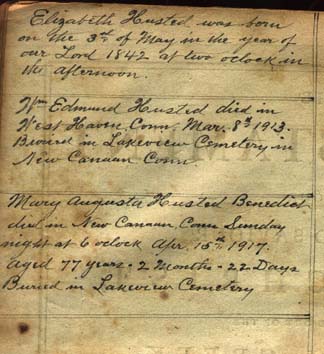 Elizabeth Husted was born
on the 3rd of May in the year of
our Lord 1842 at two oclock in
the afternoon.
Wm Edmund Husted died in
West Haven, Conn. Mar. 8th 1913.
Buried in Lakeview Cemetery in
New Canaan Conn
Mary Augusta Husted Benedict
died in New Canaan Conn Sunday
night at 6 oclock Apr. 15th 1917.
Aged 77 years - 2 Months - 22 Days
Buried in Lakeview Cemetery